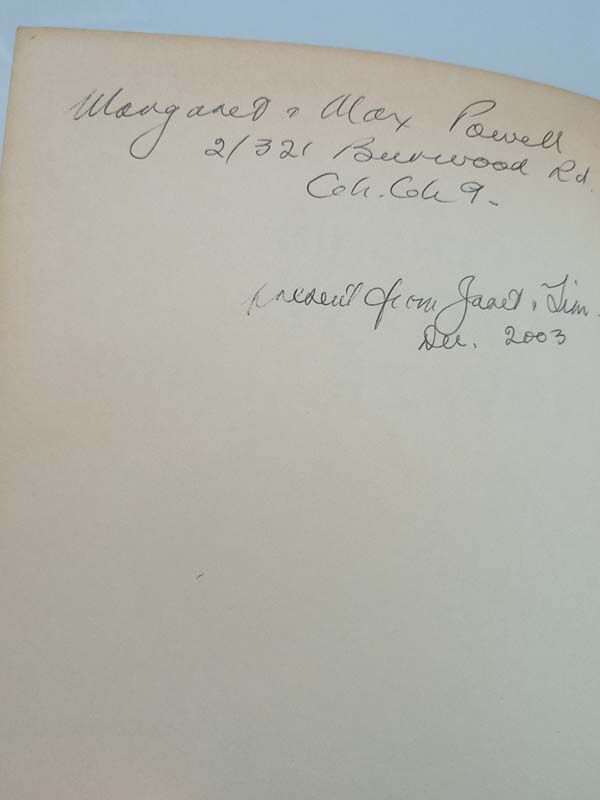 Margaret & Max Powell
2/321 Burwood Rd.
present from Janet & Tim.
Dec. 2003